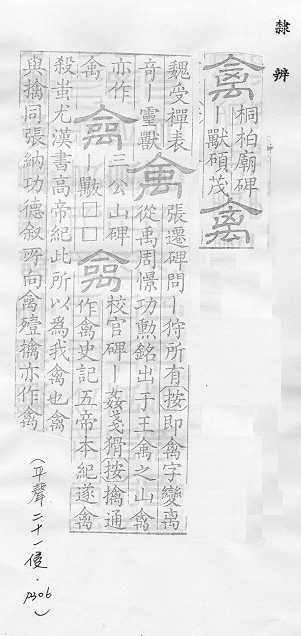 隸辨
禽桐柏廟碑
丨獸碩茂禽
魏受禪表禽張遷碑問丨狩所有按即禽字變离
奇丨靈獸從禹周憬功勳銘出于王禽之山禽
亦作禽三公山碑禽校官碑丨姦戔猾按擒通
禽丨獸□□作禽史記五帝本紀遂禽
殺蚩尤漢書高帝紀此所以為我禽也禽
與擒同張納功德叙所向禽殪擒亦作禽
(平聲二十一侵．p306)